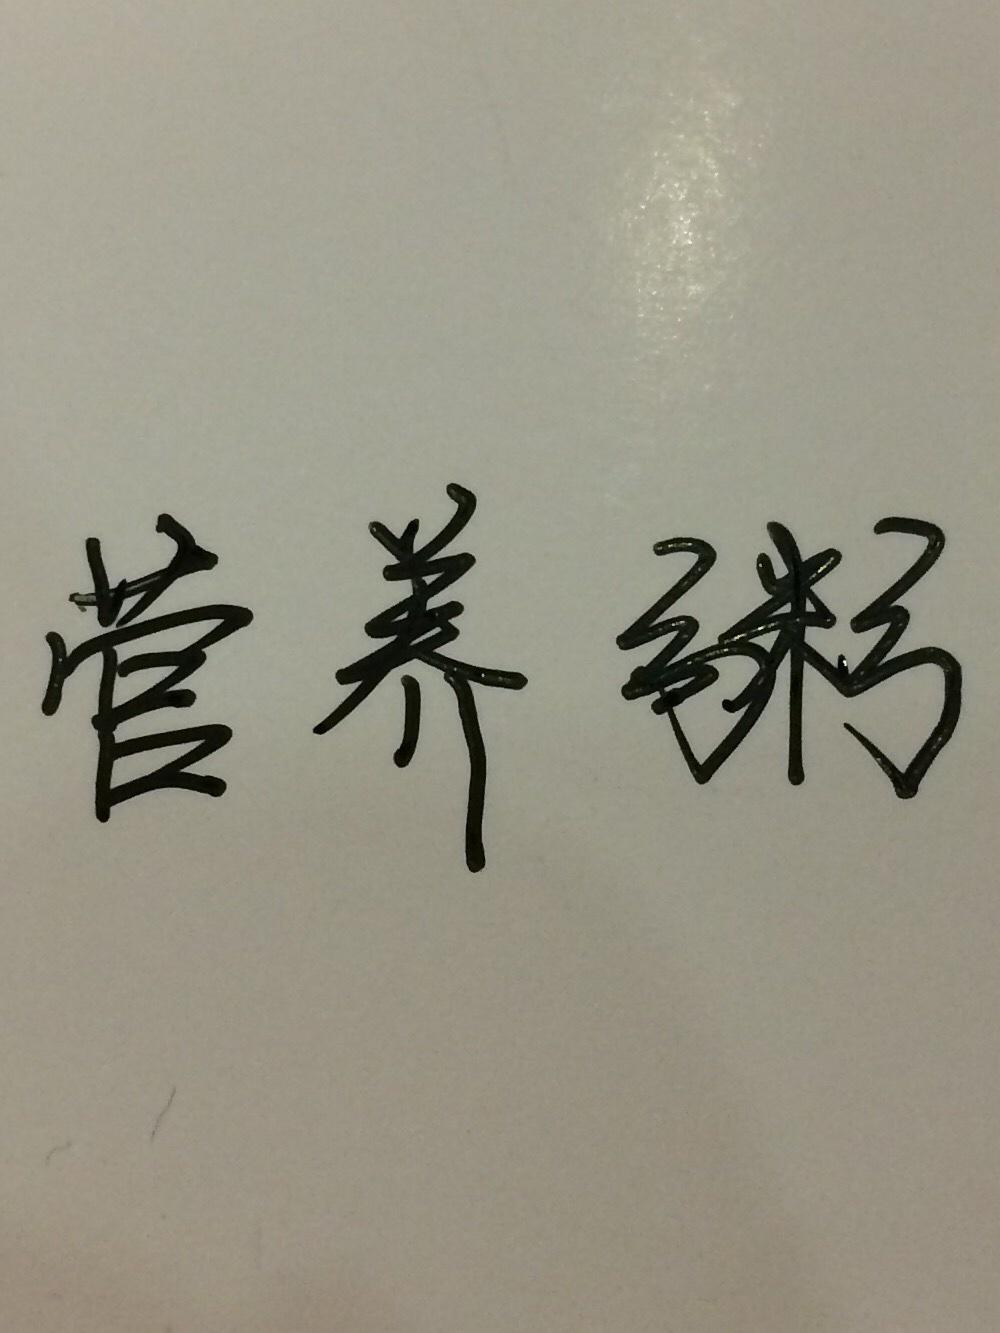 营养粥